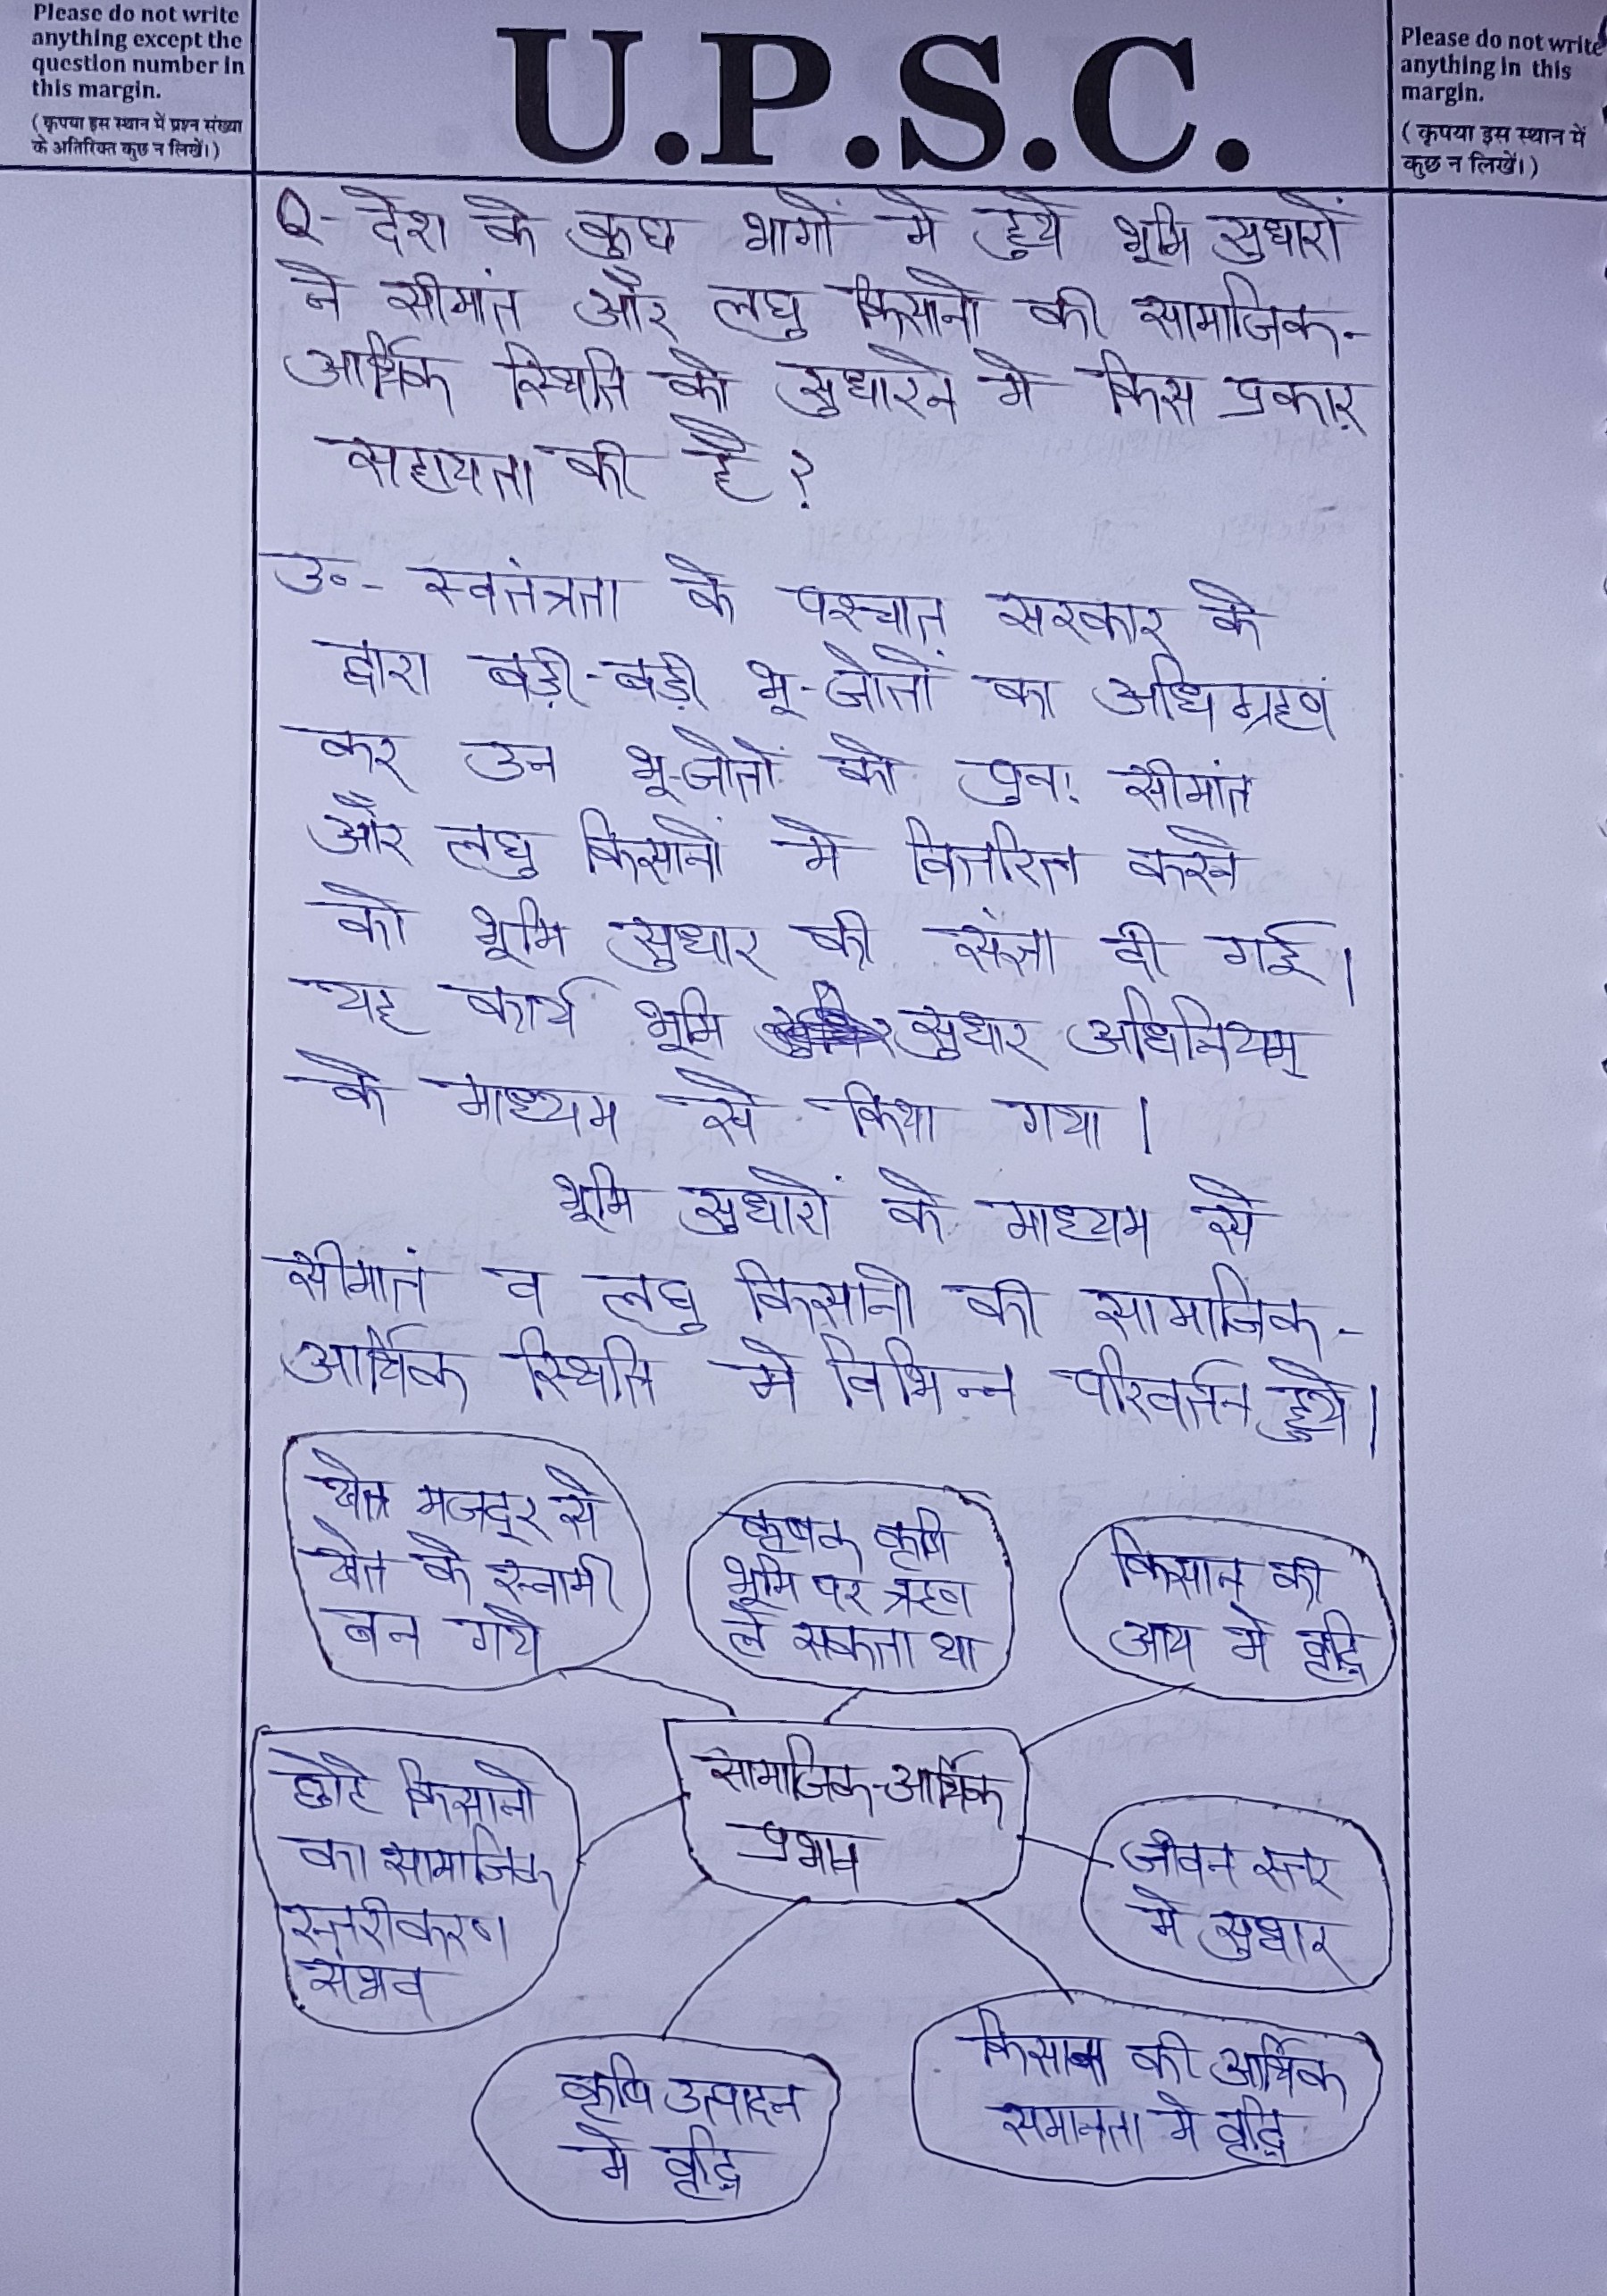 Please do not write
anything except the
question number in
this margin.
(कृपया इस स्थान में प्रश्न संख्या
के अतिरिक्त कुछ न लिखें।)
U.P.S.C.
Please do not write
anything in this
margin.
(कृपया इस स्थान में
कुछ न लिखें।)
Q- देश के कुछ भागों में हुये भूमि सुधारों
ने सीमांत और लघु किसानो की सामाजिक-
आर्थिक स्थिति को सुधारने मे किस प्रकार
सहायता की है?
उ०- स्वतंत्रता के पश्चात् सरकार के
द्वारा बड़ी-बड़ी भू-जोतों का अधिग्रहण
कर उन भू-जोतों को पुनः सीमांत
और लघु किसानों मे वितरित करने
को भूमि सुधार की संज्ञा दी गई।
यह कार्य भूमि सुधार अधिनियम
के माध्यम से किया गया।
भूमि सुधारों के माध्यम से
सीमातं व लघु किसानो की सामाजिक-
आर्थिक स्थिति मे विभिन्न परिवर्तन हुये।
खेत मजदूर से
खेत के स्वामी
बन गये
कृषक कृषि
भूमि पर ऋण
ले सकता था
किसान की
आय मे वृद्धि
छोटे किसानो
का सामाजिक
स्तरीकरण
संभव
सामाजिक-आर्थिक
प्रभाव
जीवन स्तर
मे सुधार
कृषि उत्पादन
मे वृद्धि
किसान की आर्थिक
समानता मे वृद्धि